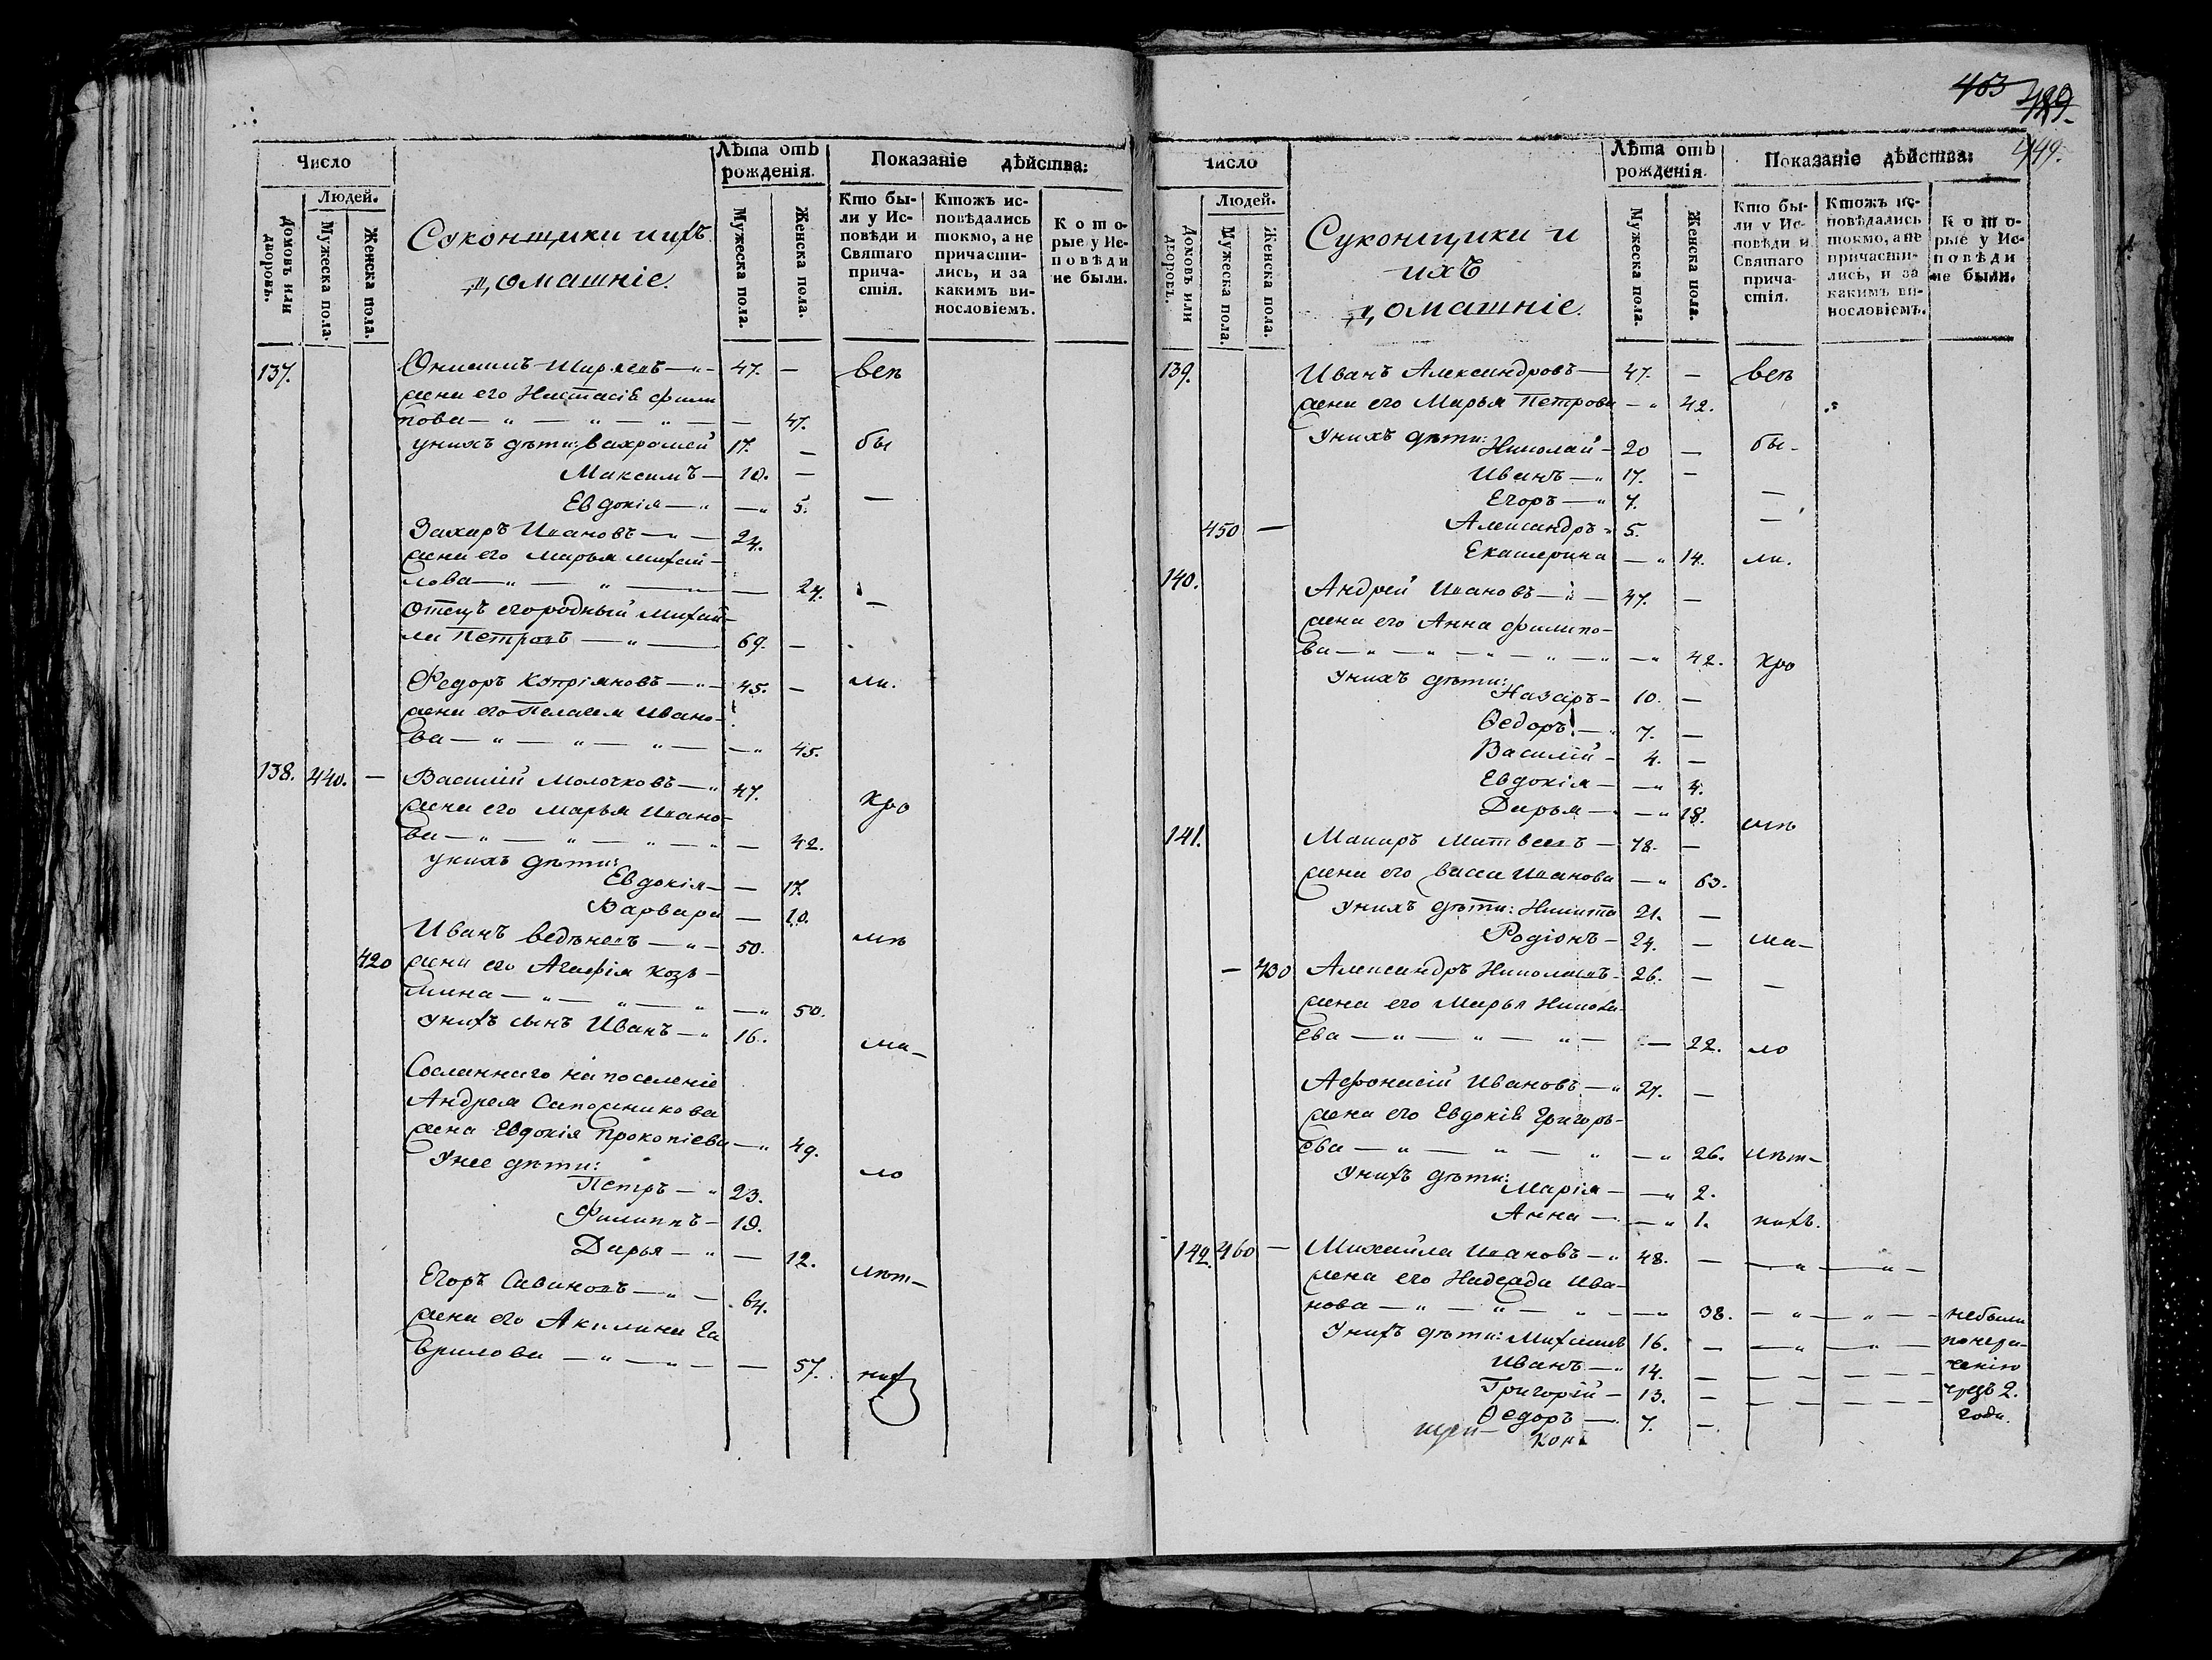 Число
Людей.
Домовъ или дворовъ.
Мужеска пола.
Женска пола.
Суконщики иихъ
домашніе.
Лѣта отъ рожденія.
Мужеска пола.
Женска пола.
Показаніе дѣйства:
Кто бы-
ли у Ис-
повѣди и
Святаго
прича-
стія.
Ктожъ ис-
повѣдались
токмо, а не
причасти-
лись, и за
какимъ ви-
нословіемъ.
Кото-
рые у Ис-
повѣди
не были.
137. Онисимъ Ширяевъ — 47. — веп
жена его Настасія фили
пова — — 47.
унихъ дѣти: Вахромей 17. — бы
Максимъ — 10. —
Евдокія — — 5. —
Захаръ Ивановъ — 24.
жена его Марья михай-
лова — — 24. —
Отецъ его родный михай-
ла Петровъ — 69. —
Федоръ Купріяновъ — 45. — ли.
жена его Пелагея Ивано-
ва — — 45.
138. 440. — Василій Молочковъ — 47. кро
жена его Марья Ивано-
ва — — 42.
унихъ дѣти:
Евдокія — — 17.
Варвара — 10.
Иванъ — 50.
420 жена его Агафія козь-
мина — — 50.
унихъ сынъ Иванъ — 16. ма-
Сосланнаго на поселеніе
Андрея Сапожникова
жена Евдокія Прокопіева — 49.
Унее дѣти: ло
Петръ — 23.
Филиппъ — 19.
Дарья — — 12. лѣт-
Егоръ Савиновъ — 64.
жена его Акилина Га
врилова — — 57. них
403
489.
449.
Число
Людей.
Домовъ или дворовъ.
Мужеска пола.
Женска пола.
Суконщики и
ихъ
домашніе.
Лѣта отъ рожденія.
Мужеска пола.
Женска пола.
Показаніе дѣйства:
Кто бы-
ли у Ис-
повѣди и
Святаго
прича-
стія.
Ктожъ ис-
повѣдались
токмо, а не
причасти-
лись, и за
какимъ ви-
нословіемъ.
Кото-
рые у Ис-
повѣди
не были.
139. Иванъ Александровъ — 47. — веп
жена его Марья Петрова — 42.
Унихъ дѣти:
Николай — 20 — бы-
Иванъ — 17. —
Егоръ — 7. —
450 — Александръ 5. —
Екатерина — 14. ли.
140. Андрей Ивановъ — 47. —
жена его Анна филипо-
ва — — 42. кро
Унихъ дѣти:
Назаръ — 10. —
Ѳедоръ — 7. —
Василій — 4. —
Евдокія — — 4.
Дарья — — 18.
141. Макаръ Матвеевъ — 78. —
жена его Васса Иванова — 63.
Унихъ дѣти: Никита 21. —
Родіонъ — 24. — ма-
— 430 Александръ Николаевъ 26. — —
жена его Марья Никола-
ева — — 22. ло
Афонасій Ивановъ — 27. —
жена его Евдокія Григорь-
ева — — 26. лѣт-
Унихъ дѣти:
Марія — — 2.
Анна — — 1. нихъ.
142. 460 — Михайла Ивановъ — 48. —
жена его Надежда Ива-
нова — — 38. — небыли
Унихъ дѣти: Михаилъ 16. — понера-
Иванъ — 14. — ченію
Григорій — 13. — чрезъ 2.
Ѳедоръ — 7. — года.